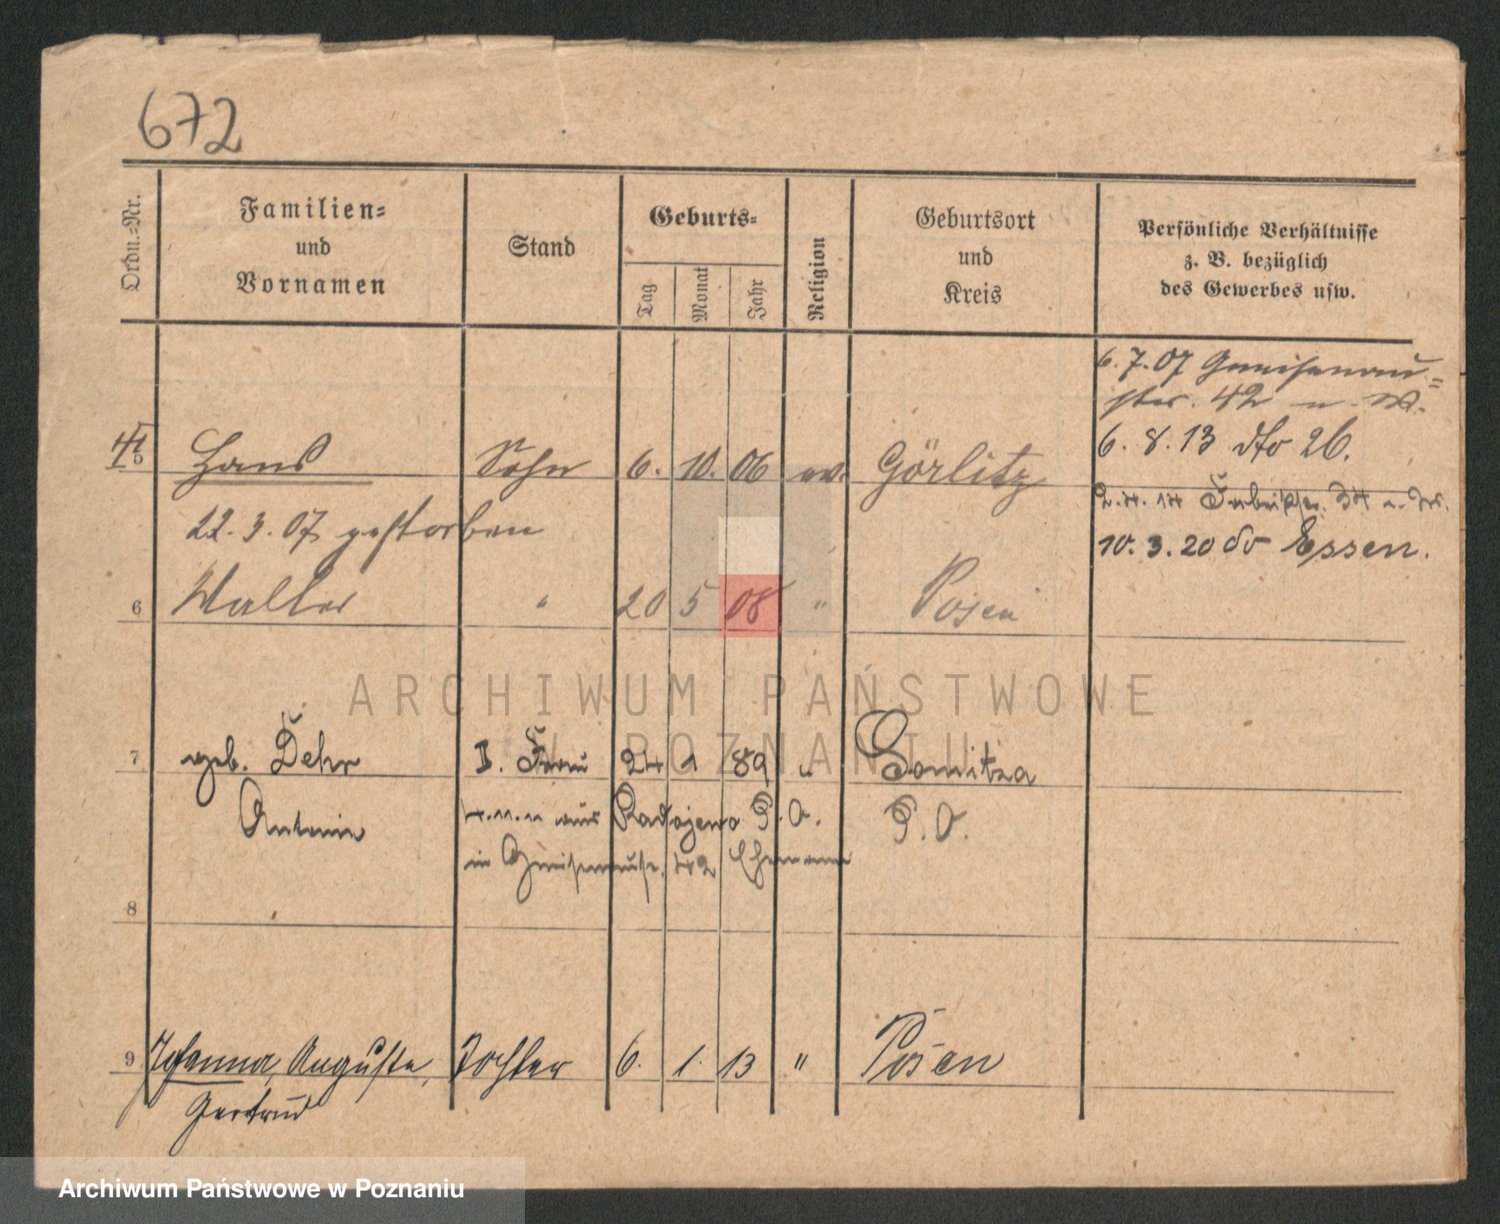 672
Ordn.-Nr.
Familien-
und
Vornamen
Stand
Geburts-
Tag
Monat
Jahr
Religion
Geburtsort
und
Kreis
Persönliche Verhältnisse
z. B. bezüglich
des Gewerbes usw.
6.7.07 Gneisenau-
str. 42 n. W.
6. 8. 13 dto 26.
5 Hans Sohn 6. 10. 06 ev. Görlitz
2.4.14 Fabrikstr. 34 n. W.
22.3.07 gestorben
10.3.20 do Essen.
6 Walter " 20 5 08 " Posen
ARCHIWUM PAŃSTWOWE
W POZNANIU
7 geb. Dehr I. Frau 24 1 89 "
Antonie 4.11.11 aus Radojewo P.O. P.O.
in Gneisenaustr. 42 Ehemann
8
9 Johanna, Auguste, Tochter 6. 1. 13 " Posen
Gertrud
Archiwum Państwowe w Poznaniu